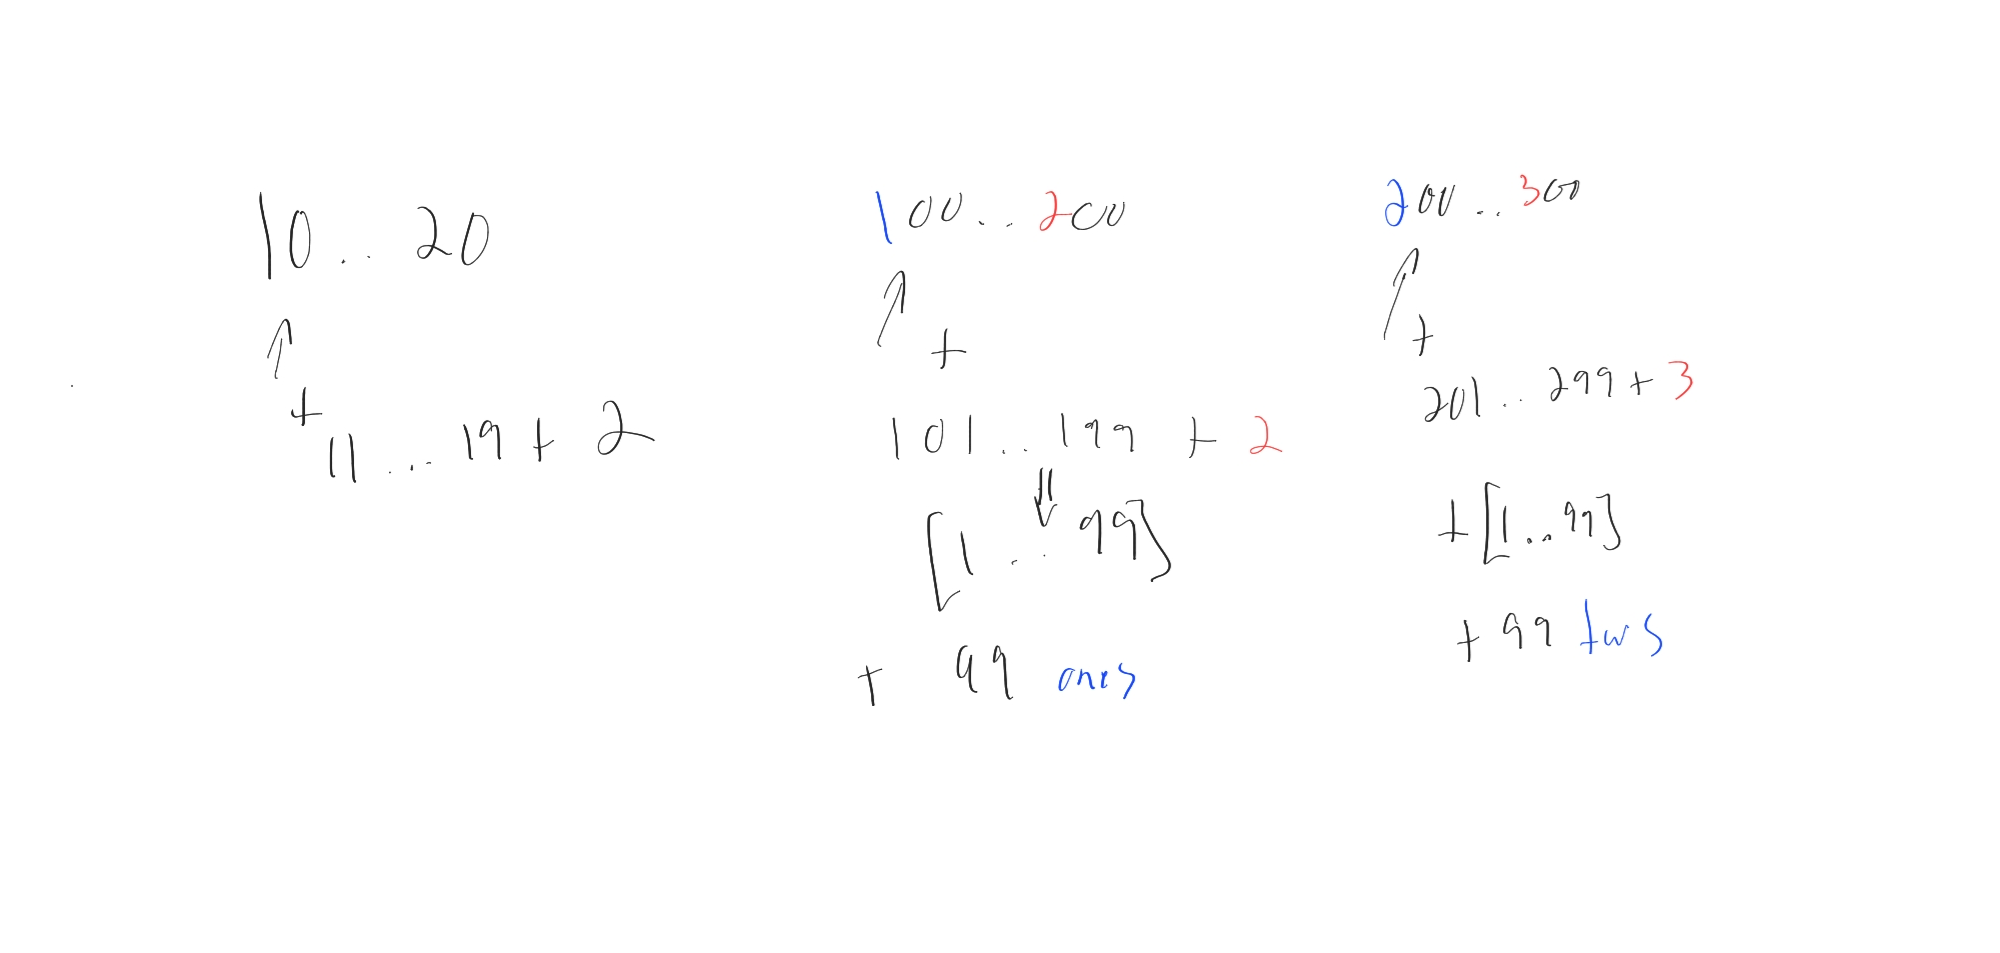 10 .. 20
+
11 ... 19 + 2
100 .. 200
+
101 .. 199 + 2
[1 .. 99]
+ 99 ones
200 .. 300
+
201 .. 299 + 3
+ [1 .. 99]
+ 99 tws